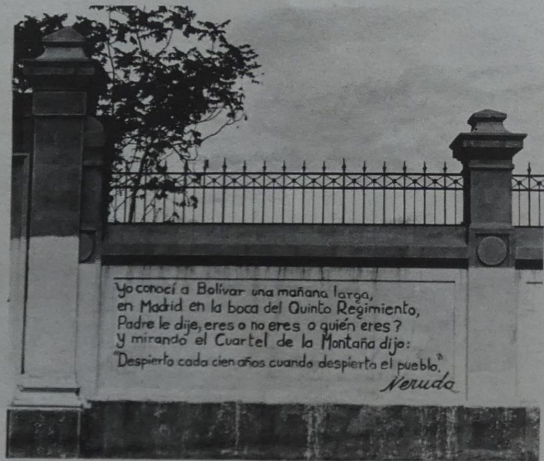 Yo conocí a Bolívar una mañana larga,
en Madrid en la boca del Quinto Regimiento,
Padre le dije, eres o no eres o quién eres?
Y mirando el Cuartel de la Montaña dijo:
"Despierto cada cien años cuando despierta el pueblo."
Neruda